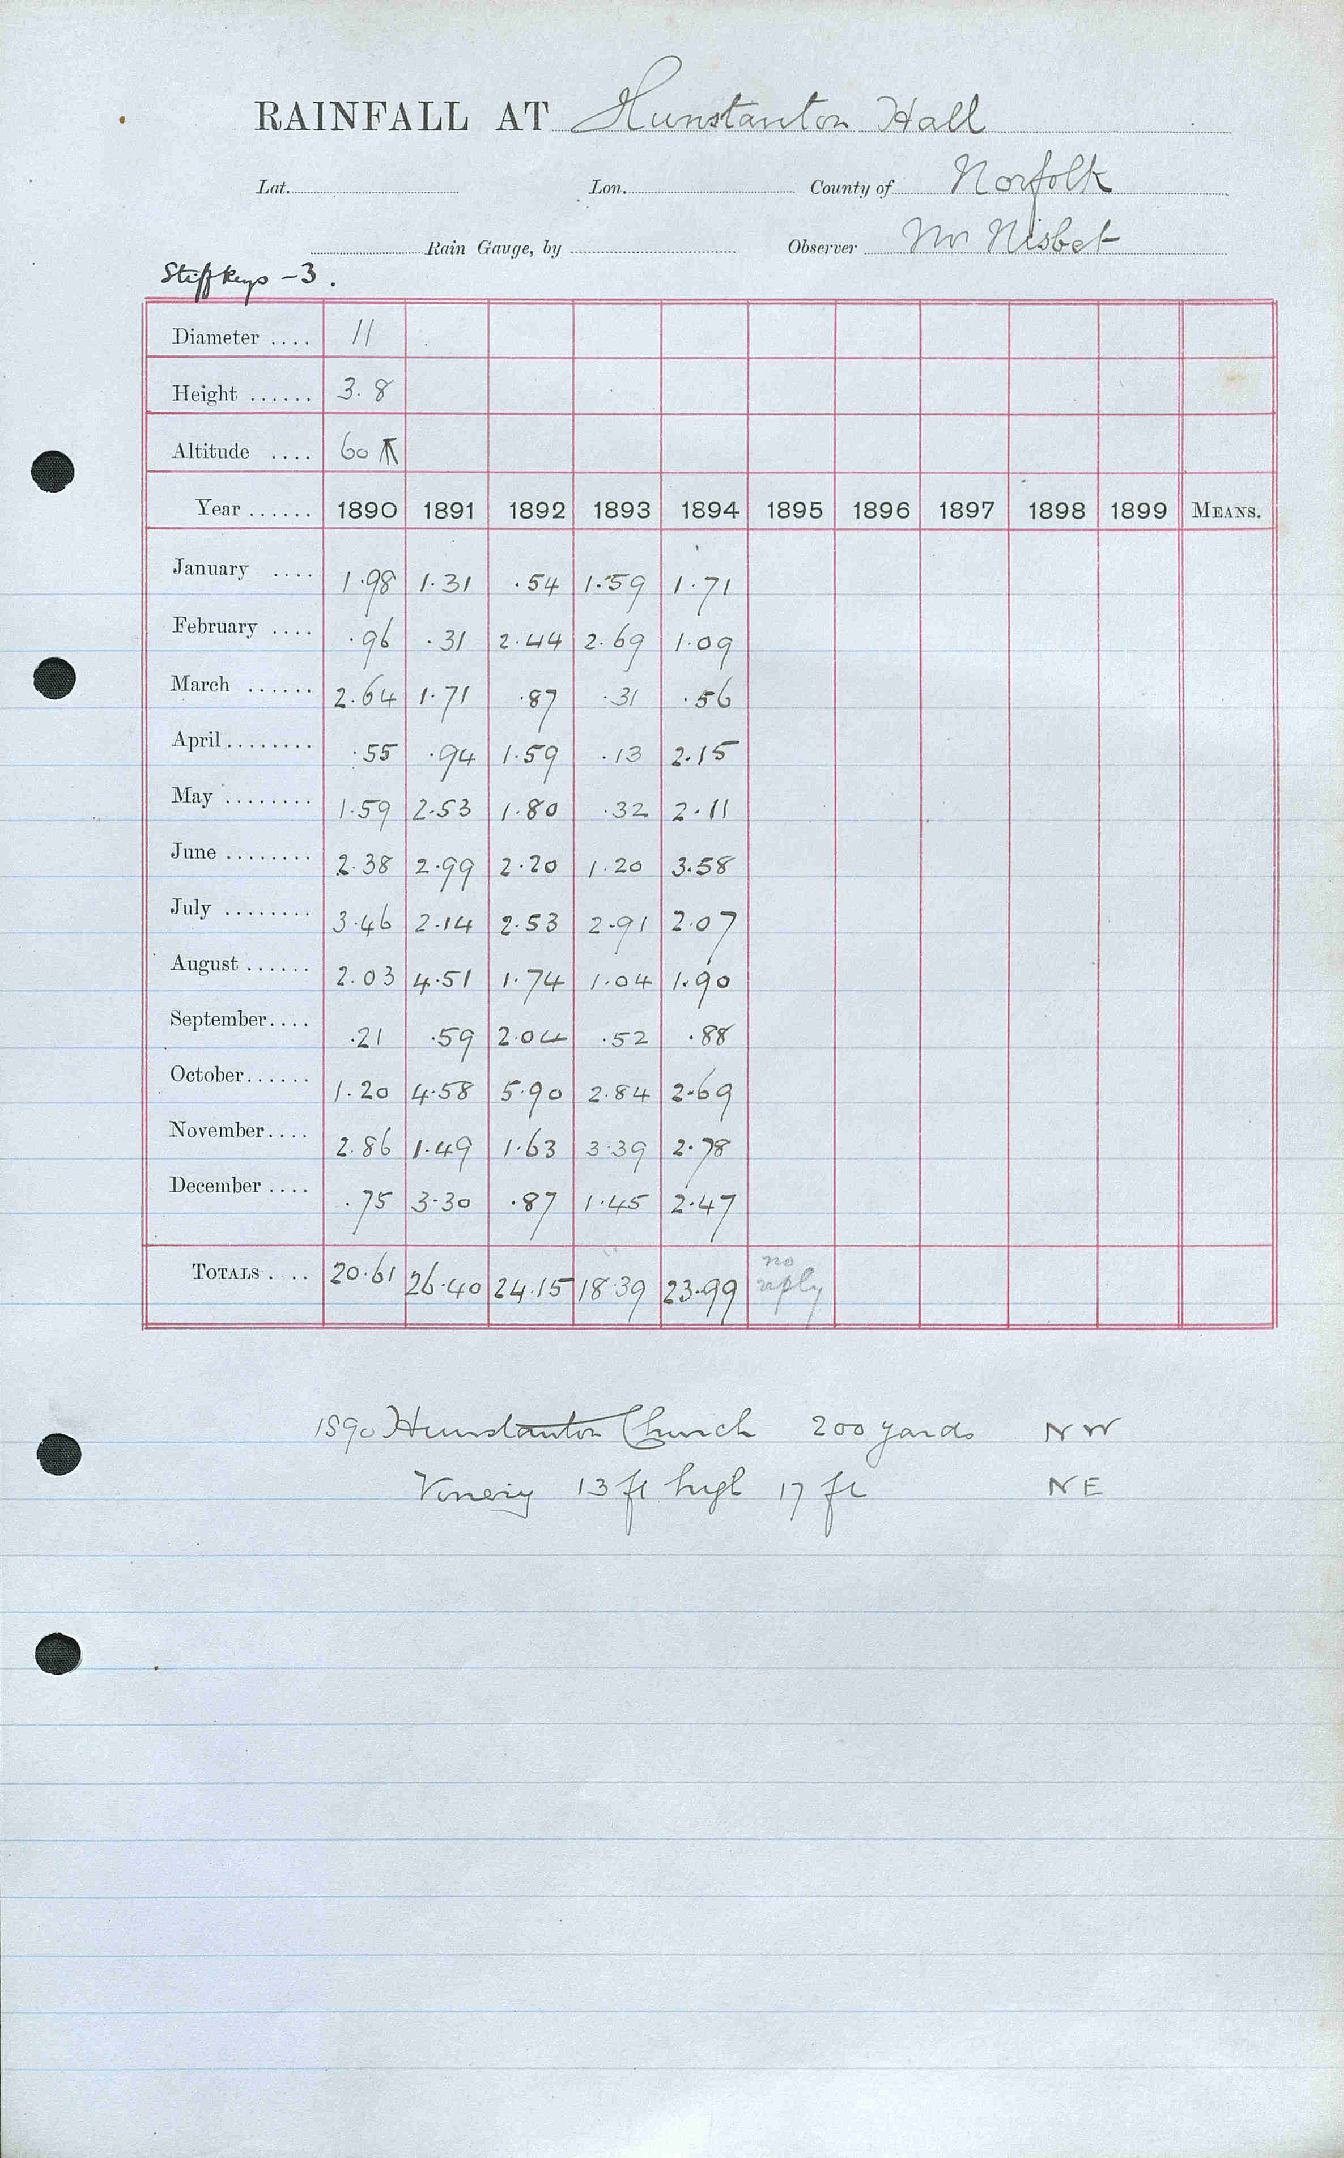 RAINFALL AT Hunstanton Hall
Lat. Lon. County of Norfolk
Rain Gauge, by Observer Mr Nisbet
Stiffkeys -3.
Diameter .... 11
Height ...... 3.8
Altitude .... 60
Year ...... 1890 1891 1892 1893 1894 1895 1896 1897 1898 1899 MEANS.
January .... 1.98 1.31 .54 1.59 1.71
February .... .96 .31 2.44 2.69 1.09
March ...... 2.64 1.71 .87 .31 .56
April ........ .55 .94 1.59 .13 2.15
May ........ 1.59 2.53 1.80 .32 2.11
June ........ 2.38 2.99 2.20 1.20 3.58
July ........ 3.46 2.14 2.53 2.91 2.07
August ...... 2.03 4.51 1.74 1.04 1.90
September.... .21 .59 2.04 .52 .88
October...... 1.20 4.58 5.90 2.84 2.69
November.... 2.86 1.49 1.63 3.39 2.78
December .... .75 3.30 .87 1.45 2.47
TOTALS .... 20.61 26.40 24.15 18.39 23.99 no reply
1890 Hunstanton Church 200 yards NW
Vinery 13 ft high 17 ft NE